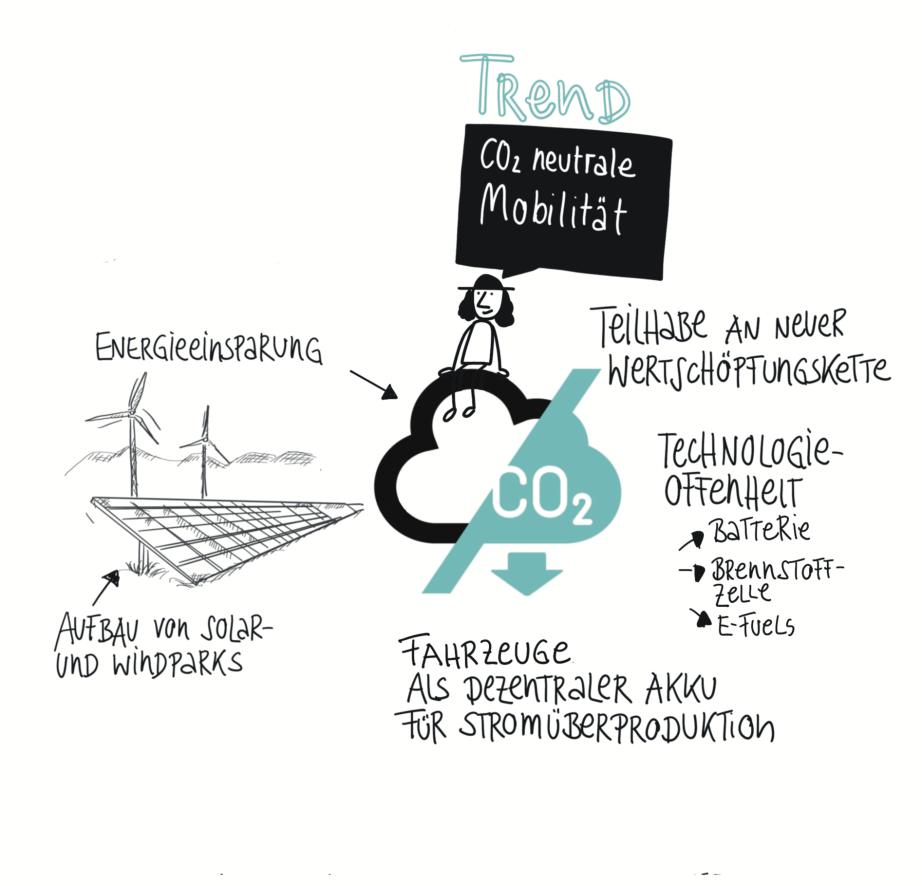 Trend
CO₂ neutrale
Mobilität
Energieeinsparung
Teilhabe an neuer
Wertschöpfungskette
CO₂
Technologie-
offenheit
Batterie
Brennstoff-
zelle
E-Fuels
Aufbau von Solar-
und Windparks
Fahrzeuge
als dezentraler Akku
für Stromüberproduktion